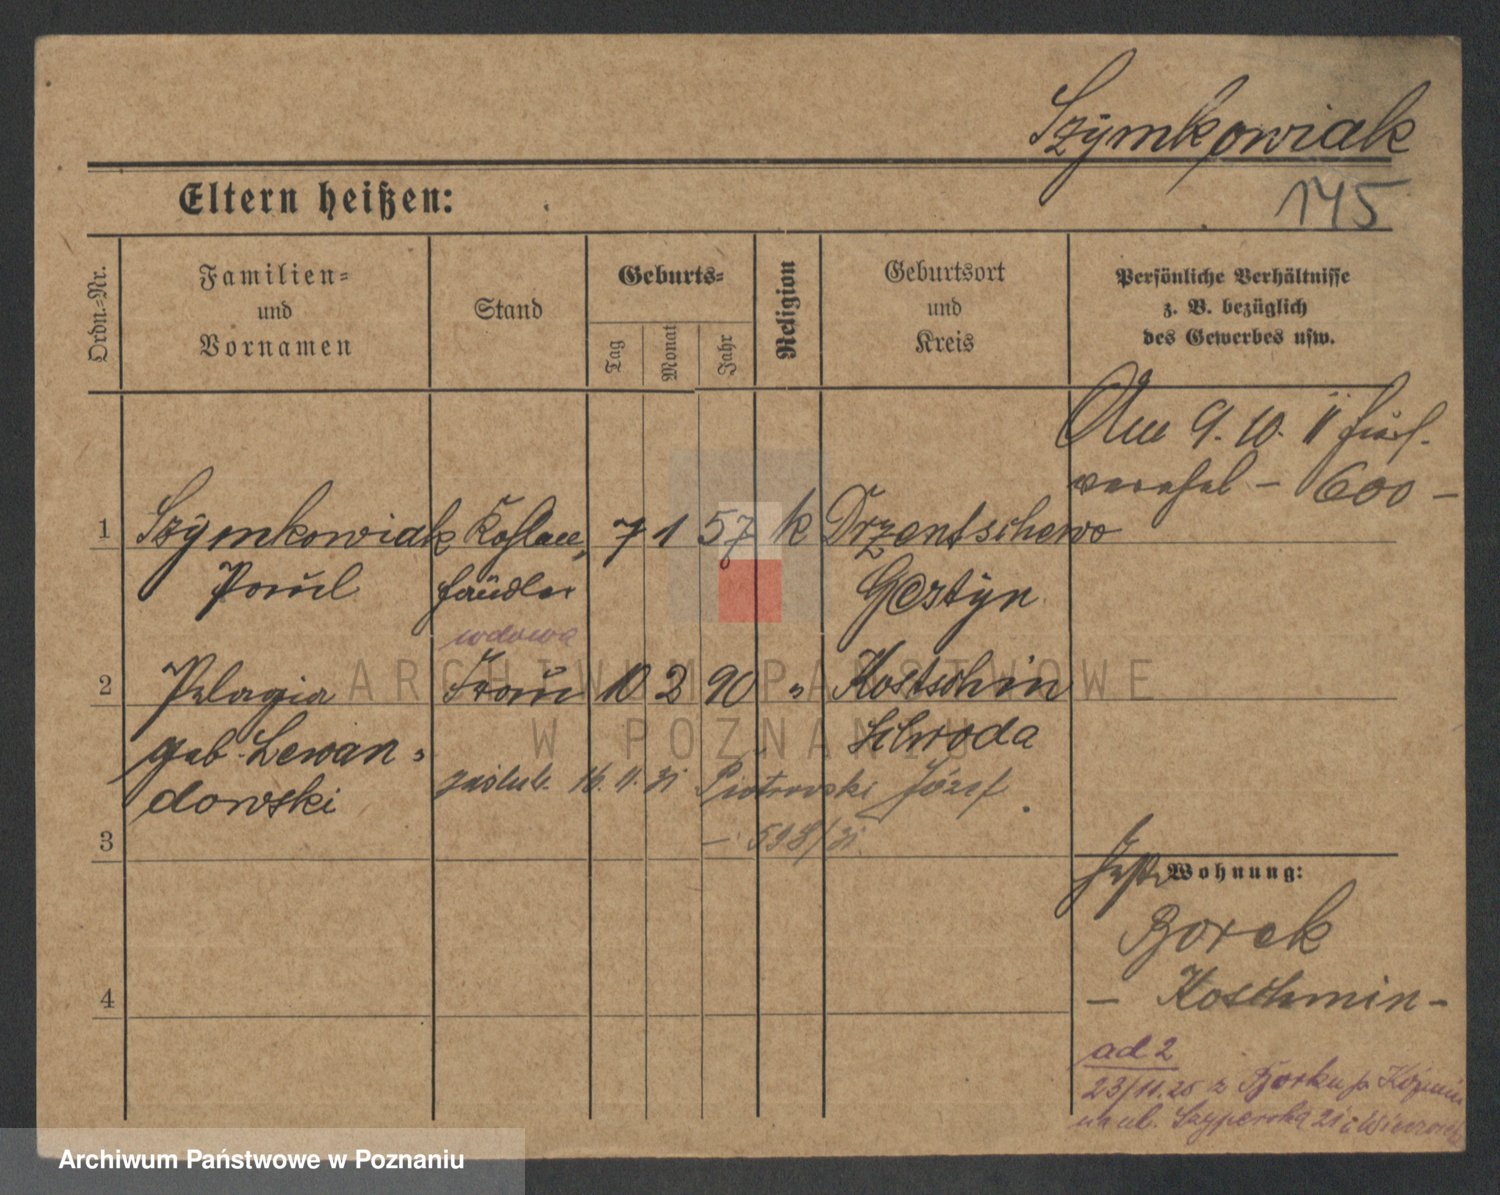 Szymkowiak
145
Eltern heißen:
Ordn.-Nr.
Familien-
und
Vornamen
Stand
Geburts-
Tag
Monat
Jahr
Religion
Geburtsort
und
Kreis
Persönliche Verhältnisse
z. B. bezüglich
des Gewerbes usw.
Am 9. 10. 11
600 –
1 Szymkowiak Kohlen- 7 1 57 k Drzentschewo
Paul händler Gostyn
wdowa
2 Pelagia Frau 10 2 90 " Kostschin
geb. Lewan- Schroda
dowski
zaślub. 16. 11. 31 Piotrowski Józef
3
– 598/31
Wohnung:
Borek
– Koschmin –
4
ad 2
23/11.25 z Borku p. Koźmin
na ul. Szyperska 21
ARCHIWUM PAŃSTWOWE
W POZNANIU
Archiwum Państwowe w Poznaniu